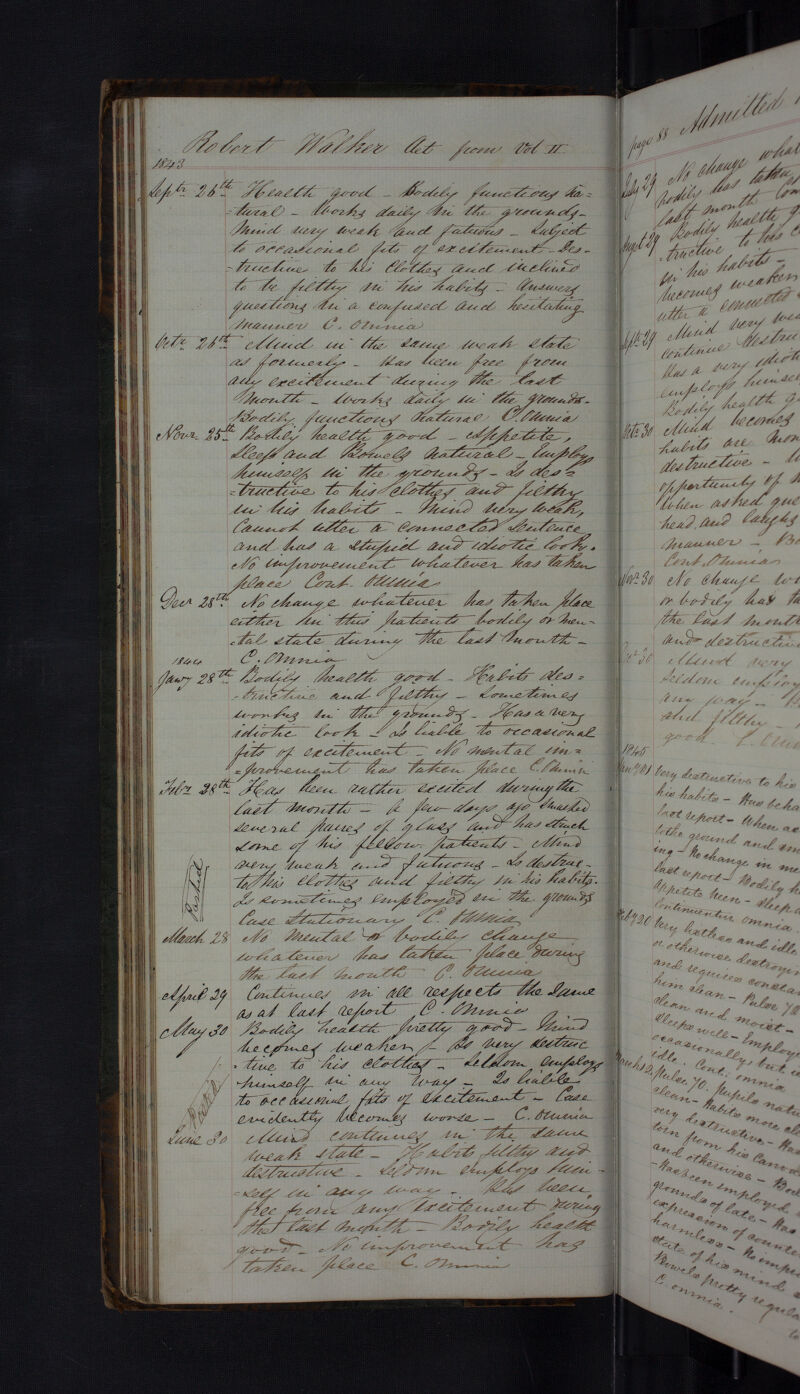 Robert Walker Act from Vol II
1843
Septr 26th Health good - Bodily functions na=
=tural - Works daily in the grounds -
Mind very weak and fatuous - Subject
to occasional fits of excitement - Des-
-tructive to his Clothes and inclined
to be filthy in his habits - Answers
questions in a confused and hesitating
manner C. Omnia
Octr 26th Mind in the same weak state
as formerly - Has been free from
any excitement during the last
Month - Works daily in the grounds -
Bodily functions natural C. Omnia
Novr 25th Bodily health good - Appetite,
Sleep and Bowels natural - Employs
himself in the grounds - Is des=
=tructive to his Clothes and filthy
in his habits - Mind very weak,
Cannot utter a connected sentence
and has a stupid and idiotic look.
No improvement whatever has taken
place Cont. Omnia
Decr 28th No change whatever has taken place
either in this patients bodily or men-
-tal state during the last month -
C. Omnia
1844
Jany 28th Bodily health good - Habits des=
-tructive and filthy - Sometimes
works in the grounds - Has a very
idiotic look - Is liable to occasional
fits of excitement - No mental im=
=provement has taken place C. Omnia
Febr 28th Has been rather excited during the
last month - A few days ago smashed
several panes of glass and has struck
some of his fellow patients - Mind
very weak and fatuous - Is destruc-
to his Clothes and filthy in his habits -
Is sometimes employed in the grounds
Case Stationary C. Omnia
March 28 No Mental or bodily change
whatever has taken place during
the last month C. Omnia
April 29 Continues in all respects the same
as at last report C. Omnia
May 30 Bodily health pretty good - Mind
becomes weaker - Is very destruc
-tive to his clothes - Seldom employs
himself in any way - Is liable
to occasional fits of excitement - Case
evidently becomes worse - C. Omnia
June 30 Mind continues in the same
weak state - Habits filthy and
destructive - Seldom employs him-
-self in any way - Has been
free from any excitement during
the last month - Bodily health
good - No improvement has
taken place C. Omnia
page 88 Admitted
July 29 No change what
bodily has taken
last month Con
Augst 29 Bodily health g
-tructive to his c
in his habits -
becomes weaker
utter a connected
Septr 29 Mind very wea
continue destru
Has a very idioti
employs himsel
Bodily health g
Octr 30 Mind becomes
habits are mor
destructive -
opportunity of
When asked que
head and laughs
manner - Bo
Cont. Omnia
Novr 30 No change
or bodily has ta
the last month
and destructive
Decr 30 Mind very
Seldom employ
any way -
and filthy -
good. C. Omn
1845
Very destructive to his
his habits - Has beha
last report - When as
to the ground and sm
ing - No change in me
last report - Bodily h
Appetite keen - Sleep
Continuentur omnia.
Feby 20 Very listless and idle
or otherwise destroyin
and requires constan
him clean - Pulse 70
clean and moist -
Sleeps well - Employ
occasionally, but is
idle. Cont. omnia
Pulse 70. Pupils natu
clean - Habits more
very destructive - Has
torn from his Canva
and otherwise - Bod
- Has been employed
grounds of late - Has
expression of counte
harmless - No impro
state of his mind
Bowels pretty regula
C. omnia.